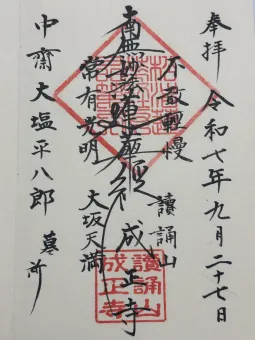 奉拝 令和七年九月二十七日
不敢軽慢
讀誦山
成正寺
南無妙法蓮華経
常有光明
大坂天満
中齋大塩平八郎 墓所
讀誦山
成正寺